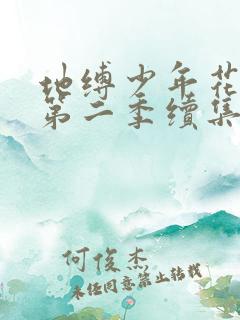 地缚少年花
第二季续集
何俊杰
未经同意禁止转载